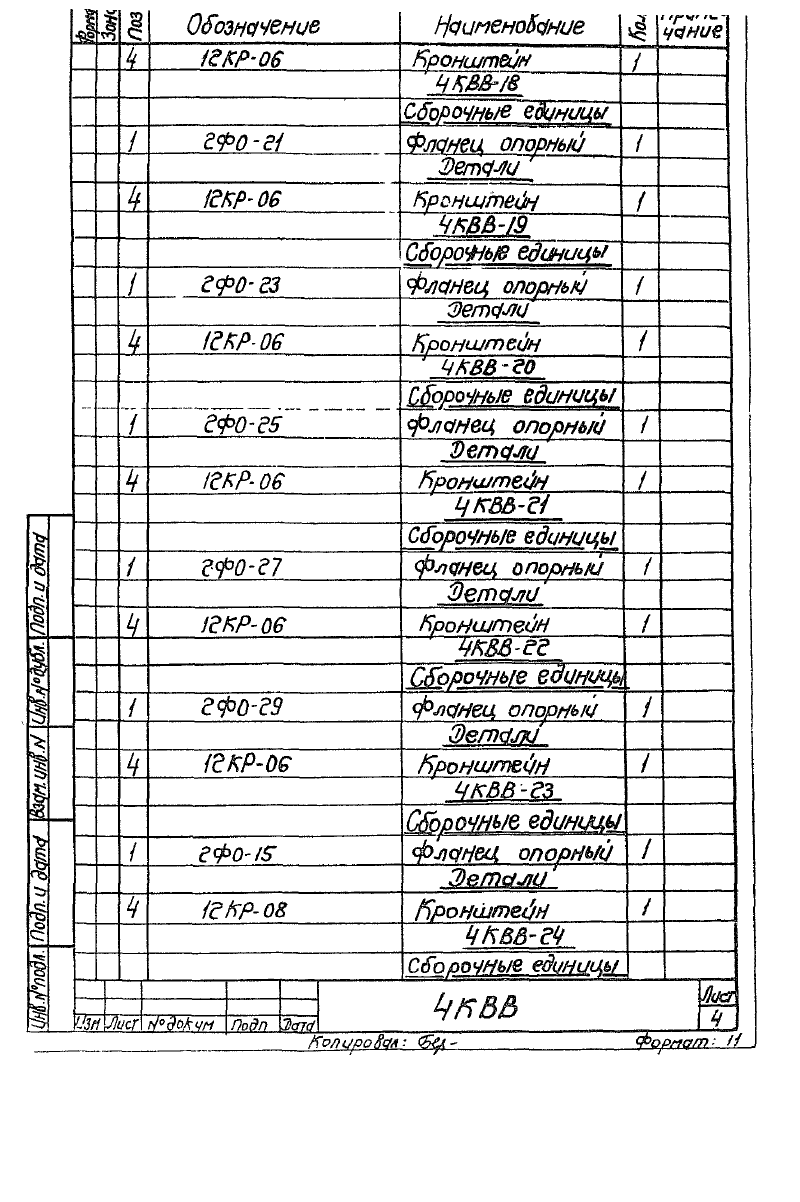 Форма Зона Поз Обозначение Наименование Кол. Приме-
чание
4 12КР-06 Кронштейн 1
4КВВ-18
Сборочные единицы
1 2ФО-21 Фланец опорный 1
Детали
4 12КР-06 Кронштейн 1
4КВВ-19
Сборочные единицы
1 2ФО-23 Фланец опорный 1
Детали
4 12КР-06 Кронштейн 1
4КВВ-20
Сборочные единицы
1 2ФО-25 Фланец опорный 1
Детали
4 12КР-06 Кронштейн 1
4КВВ-21
Сборочные единицы
1 2ФО-27 Фланец опорный 1
Детали
4 12КР-06 Кронштейн 1
4КВВ-22
Сборочные единицы
1 2ФО-29 Фланец опорный 1
Детали
4 12КР-06 Кронштейн 1
4КВВ-23
Сборочные единицы
1 2ФО-15 Фланец опорный 1
Детали
4 12КР-08 Кронштейн 1
4КВВ-24
Сборочные единицы
Подп. и дата
Инв.№дубл.
Взам.инв.N
Подп. и дата
Инв.№подл.
Изм Лист №докум Подп Дата
4КВВ
Лист
4
Копировал: Формат: 11